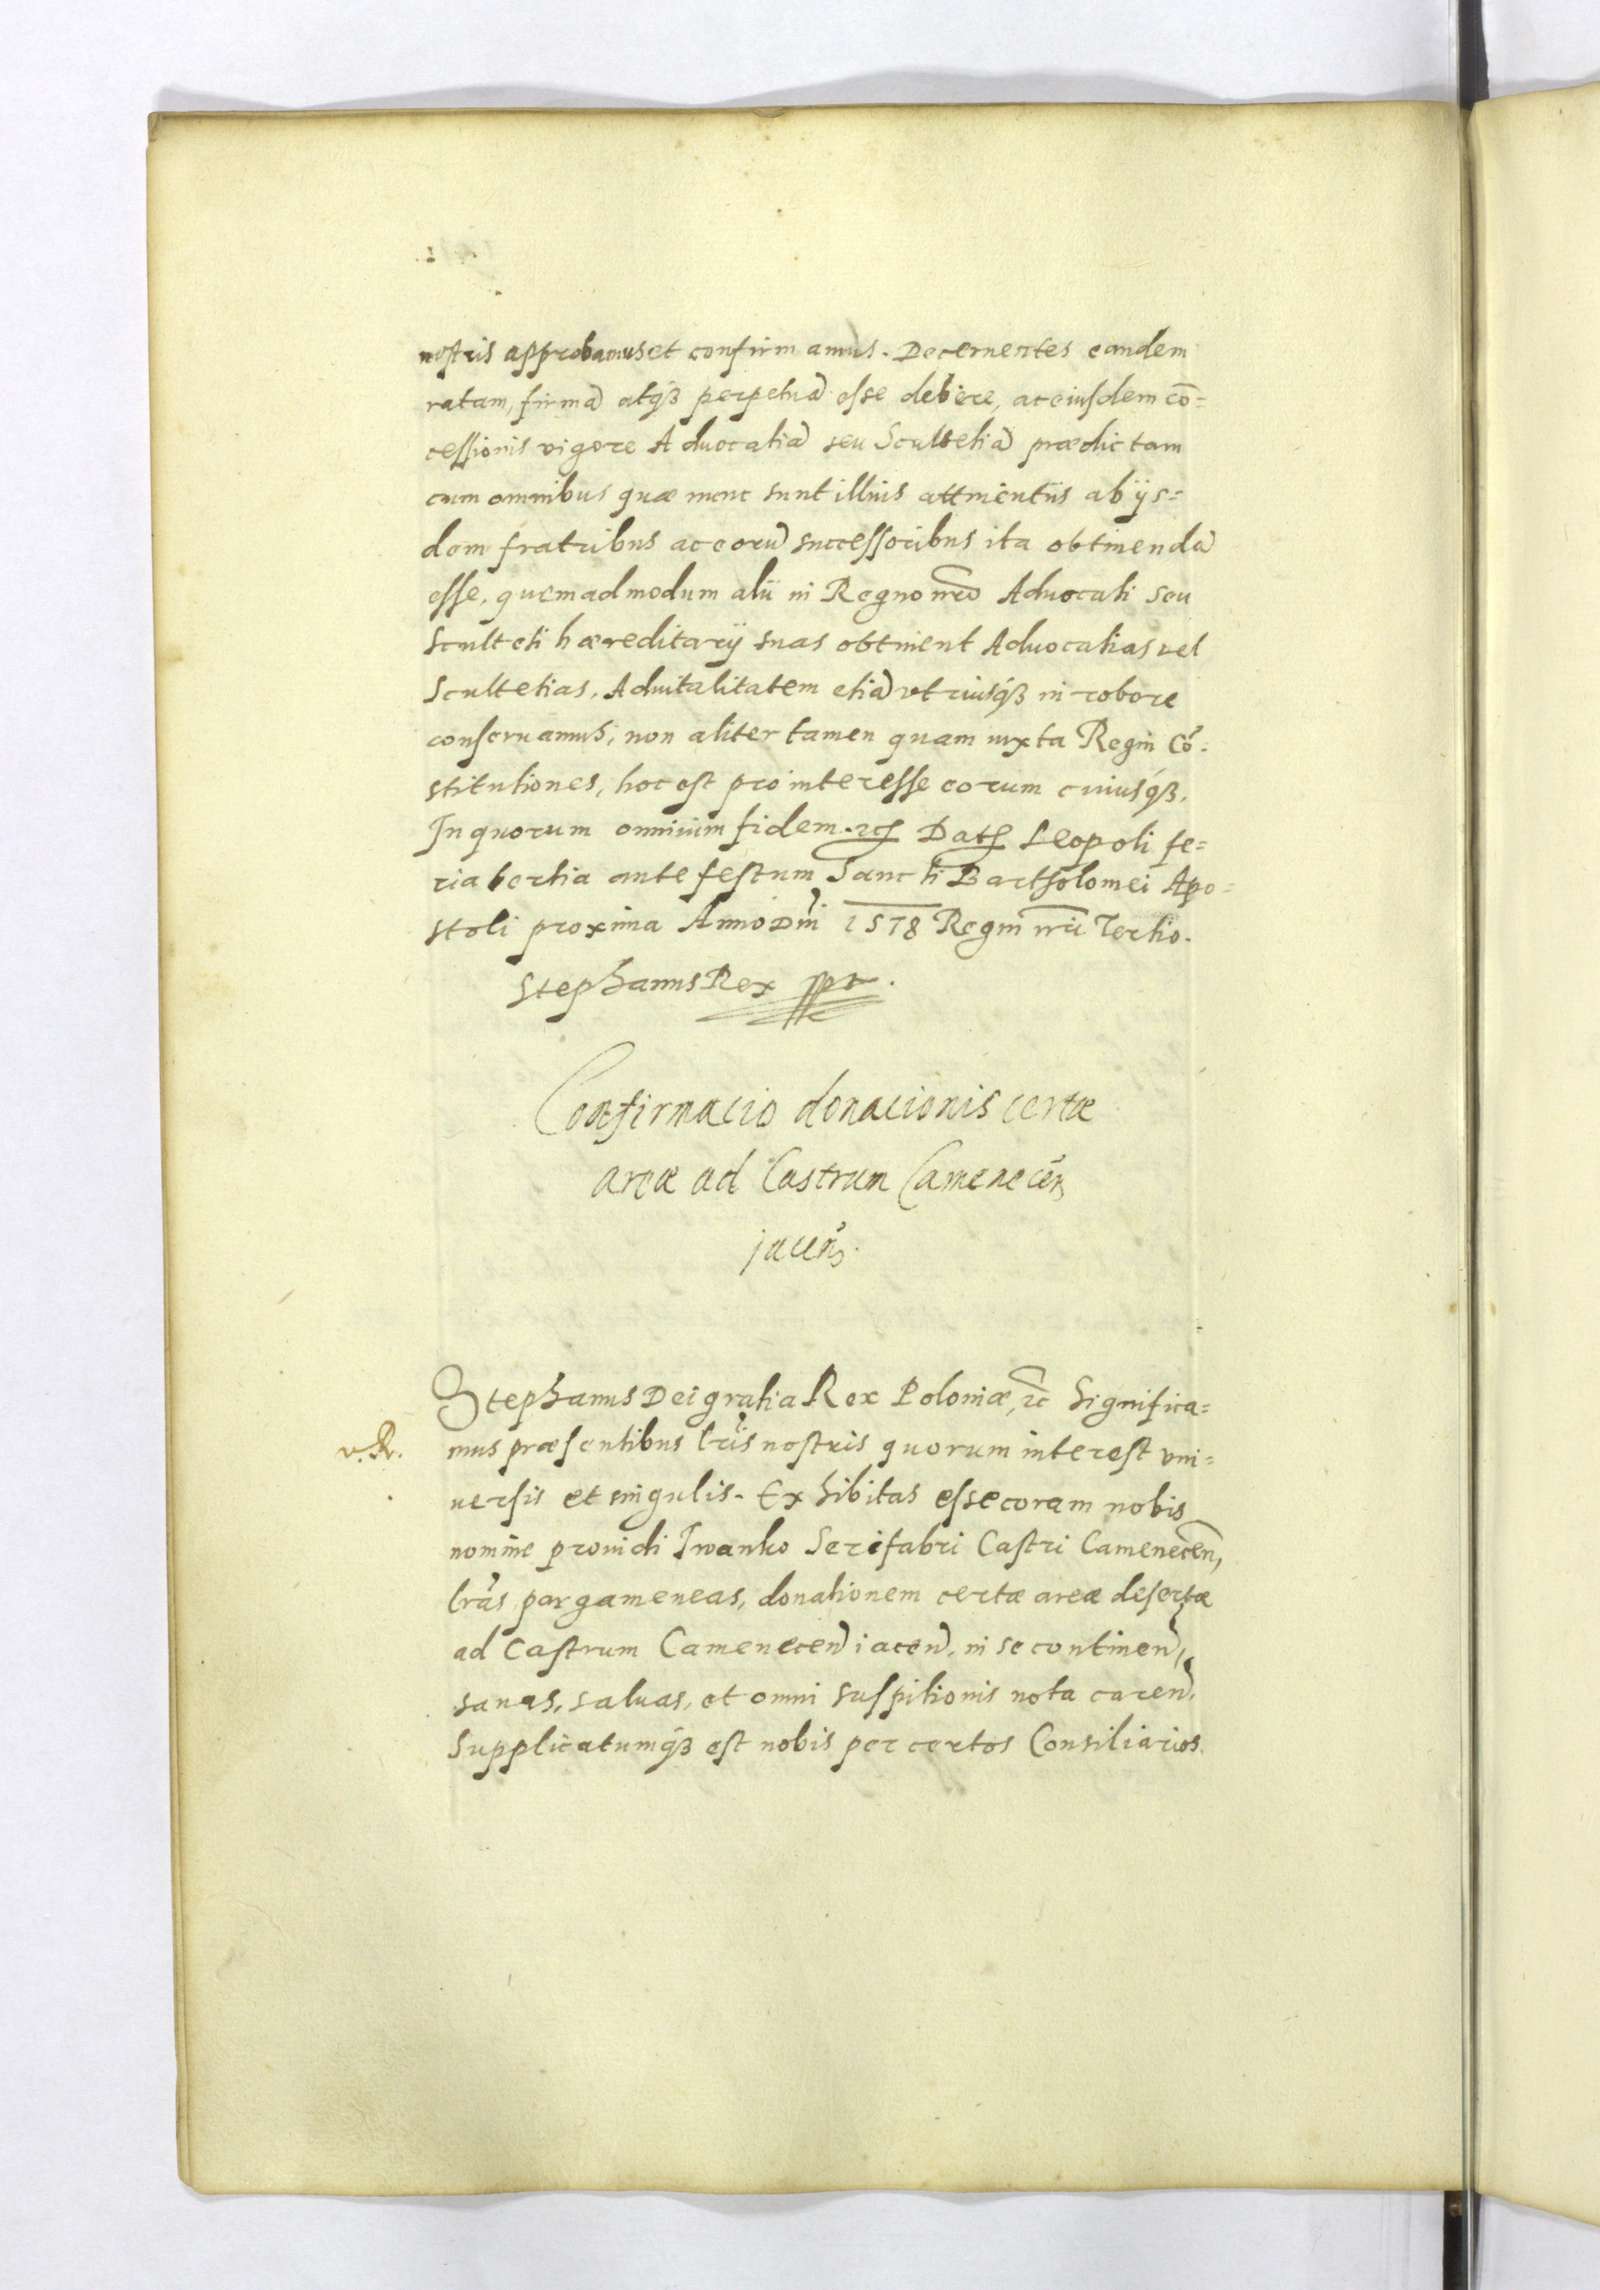 nostris approbamus et confirmamus. Decernentes eandem
ratam, firmã atq́ꝫ perpetuã esse debere, ac eiusdem cõ=
cessionis vigore Aduocatiã seu Scultetiã prædictam
cum omnibus quæ nunc sunt illius attinentiis ab ijs=
dem fratribus ac eorũ successoribus ita obtinendã
esse, quemadmodum alii in Regno nr̃o Aduocati seu
Sculteti hæreditarij suas obtinent Aduocatias vel
Scultetias. Aduitalitatem etiã vtriusq́ꝫ in robore
conseruamus, non aliter tamen quam iuxta Regni Cõ=
stitutiones, hoc est pro interesse eorum cuiusq́ꝫ.
In quorum omnium fidem. ꝛcꝭ Datꝭ Leopoli fe=
ria tertia ante festum Sancti Bartholomei Apo=
stoli proxima Anno Dnĩ 1578 Regni nr̃i Tertio.
Stephanus Rex sst.
Confirmacio donacionis certæ
areæ ad Castrum Camenecẽn
jacẽn.
Stephanus Dei gratia Rex Poloniæ, ꝛc̃ Significa=
v. R.
mus præsentibus lr̃is nostris quorum interest vni=
uersis et singulis. Exhibitas esse coram nobis
nomine prouidi Iwanko Serifabri Castri Camenecẽn,
lr̃as pargameneas, donationem certæ areæ desertæ
ad Castrum Camenecen̄ iacen̄. in se continen̄,
sanas, saluas, et omni suspitionis nota caren̄.
Supplicatumq́ꝫ est nobis per certos Consiliarios